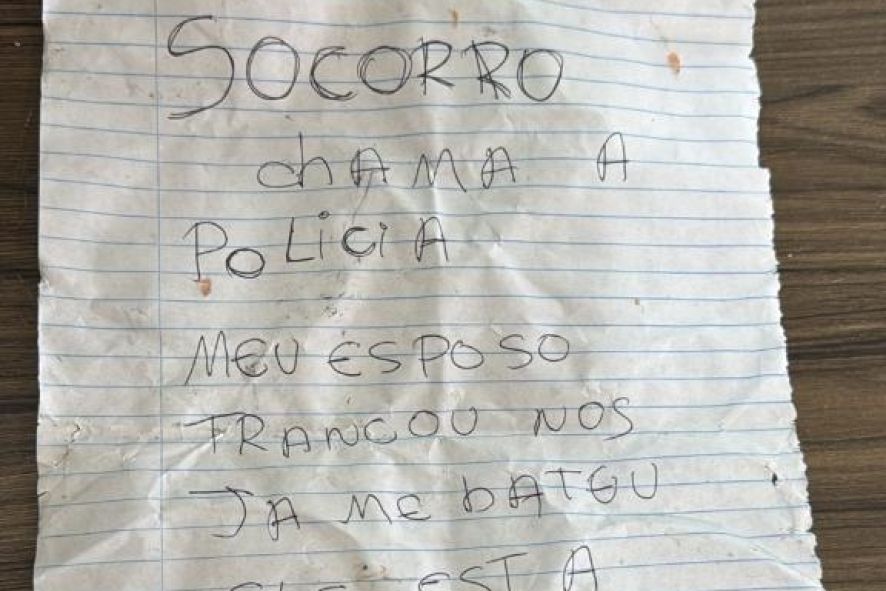 SOCORRO
chAMA A
PoLiciA
MEU ESPOSO
TRANCOU NOS
JA ME bATEU
ELE ESTA